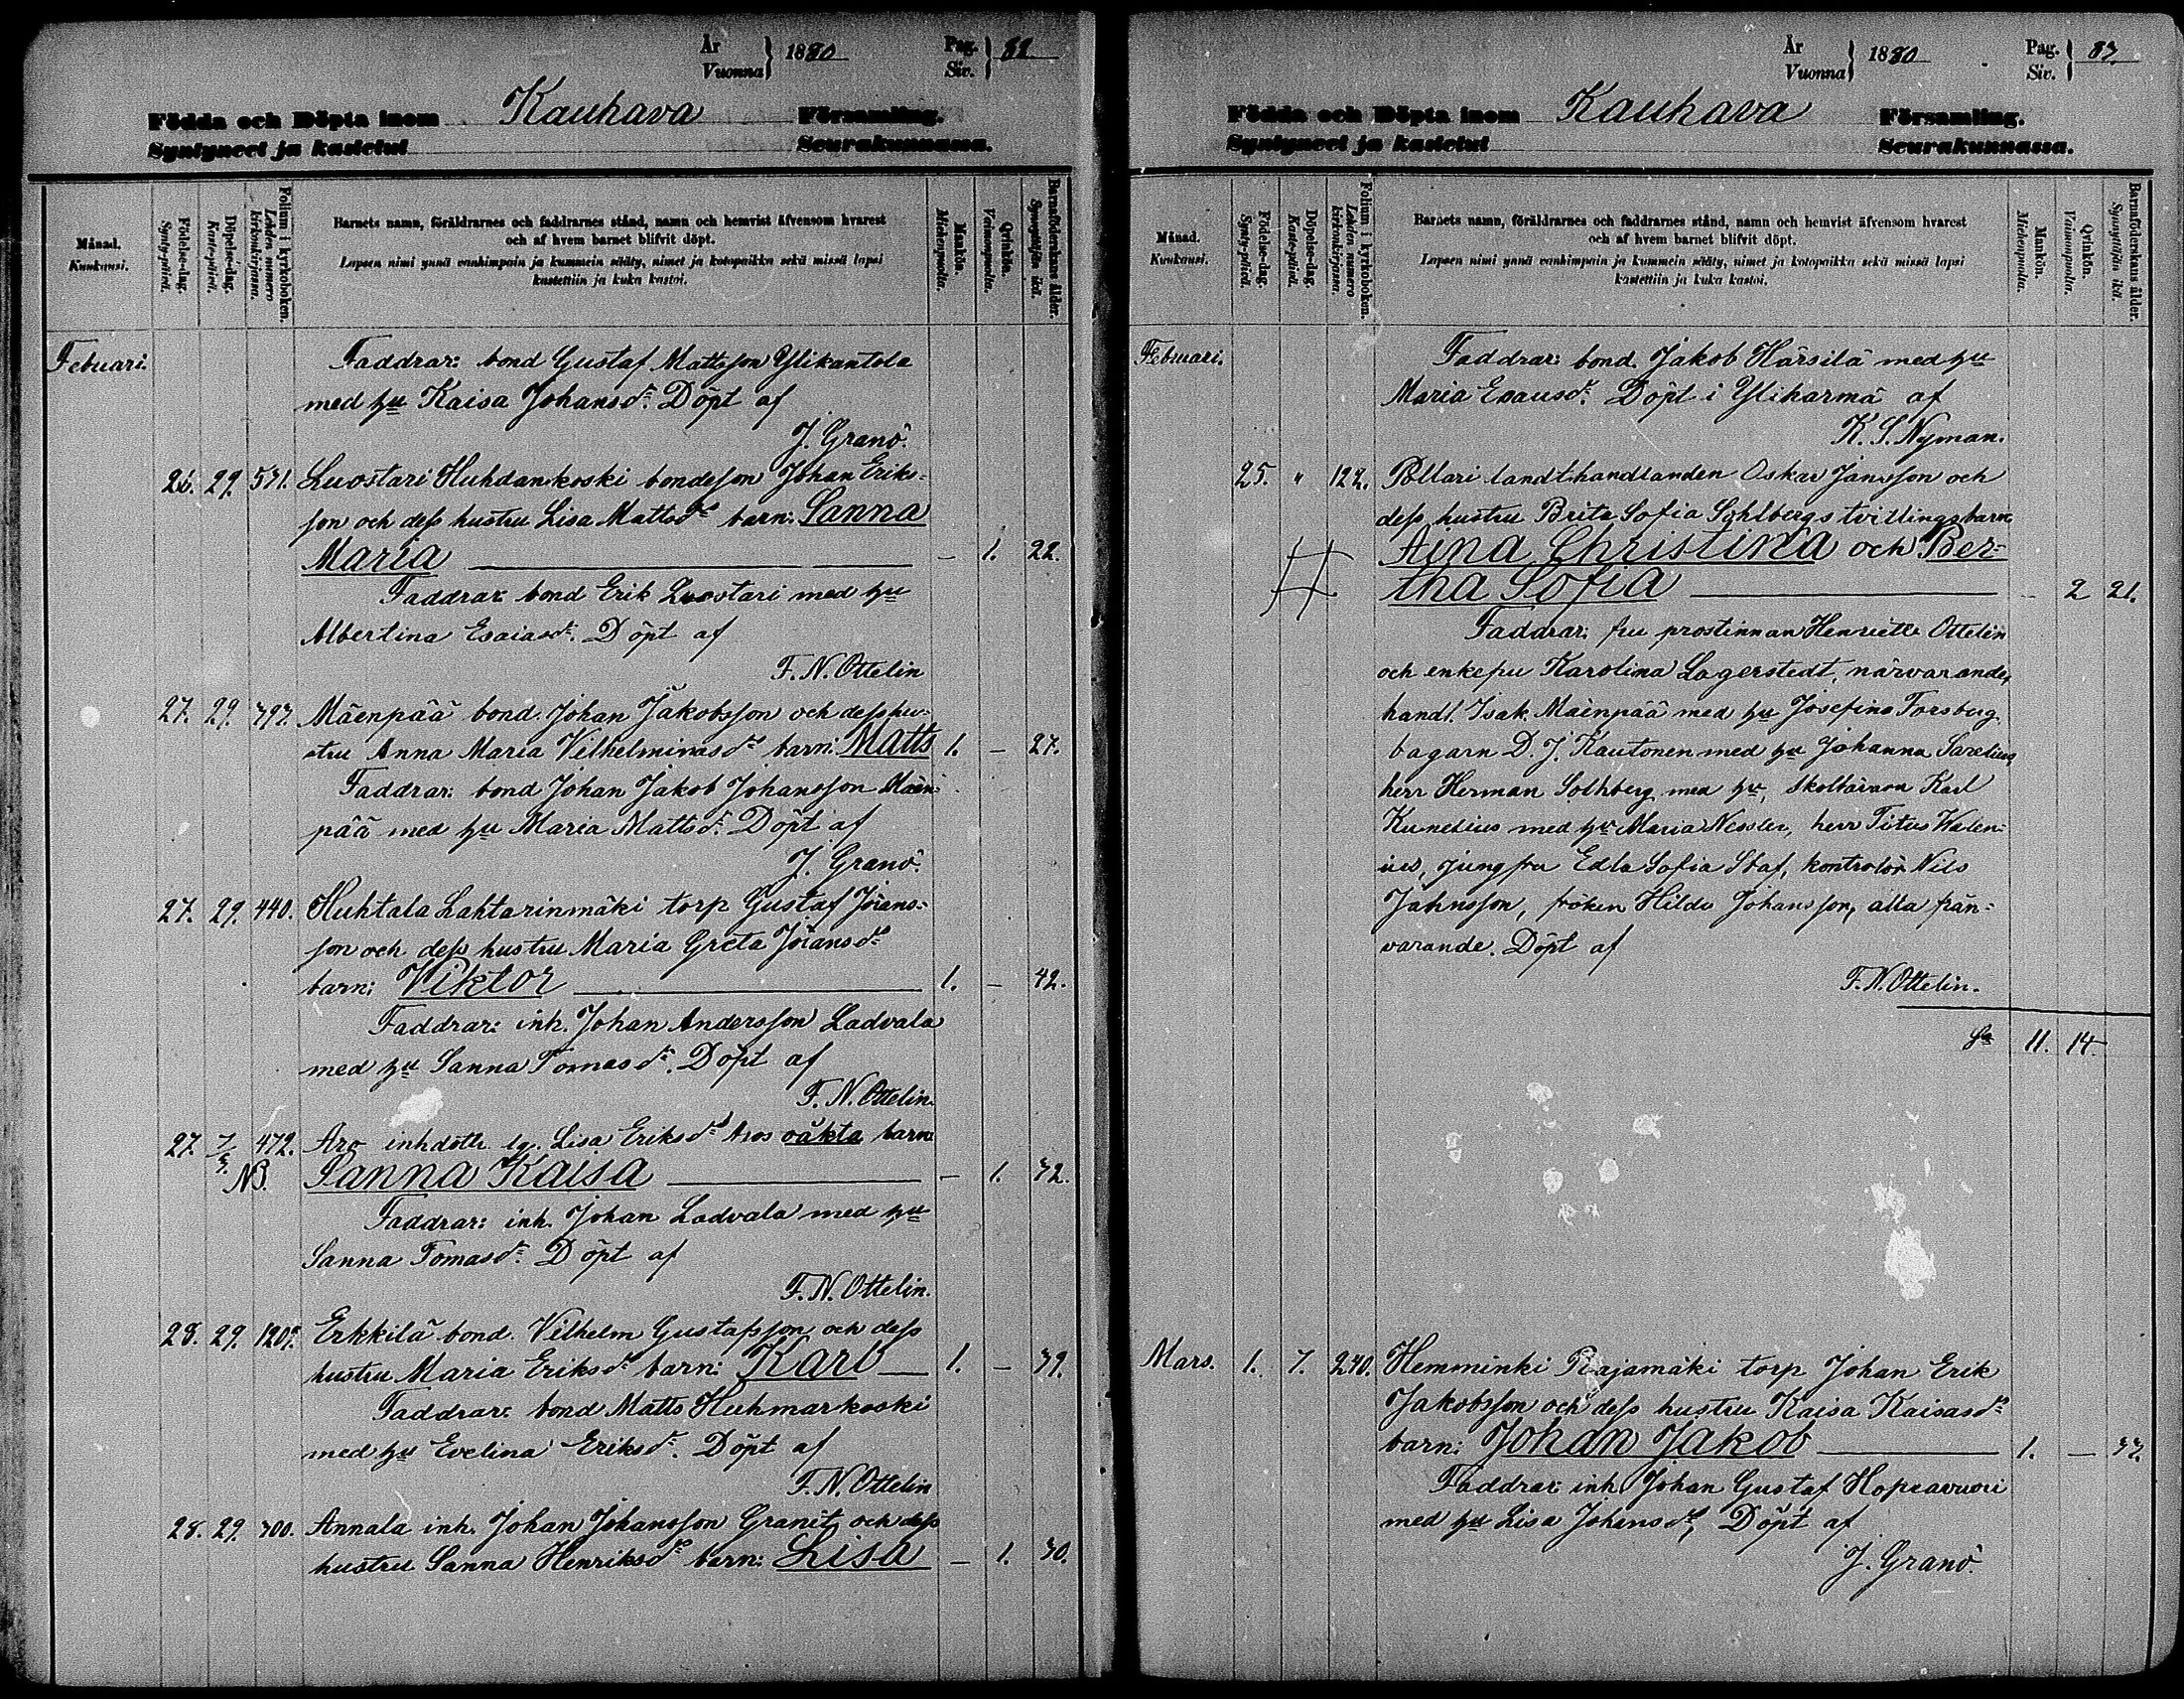 År
Vuonna
1880
Pag.
Siv.
82.
Födda och Döpta inom Kauhava Församling.
Syntyneet ja kastetut Seurakunnassa.
Månad.
Kuukausi.
Födelse-dag.
Synty-päivä.
Döpelse-dag.
Kaste-päivä.
Folium i kyrkoboken.
Lehden numero kirkonkirjassa.
Barnets namn, föräldrarnes och faddrarnes stånd, namn och hemvist äfvensom hvarest
och af hvem barnet blifvit döpt.
Lapsen nimi ynnä vanhimpain ja kummein sääty, nimet ja kotopaikka sekä missä lapsi
kastettiin ja kuka kastoi.
Mankön.
Miehenpuolia.
Qvinkön.
Vaimonpuolia.
Barnaföderskans ålder.
Synnyttäjän ikä.
Febuari. Faddrar: bond Gustaf Mattsson Ylikantola
med hu Kaisa Johansdr. Döpt af
J. Granö.
26. 29. 571. Luostari Huhdankoski bondesson Johan Eriks-
son och dess hustru Lisa Mattsdrs barn: Sanna
Maria — 1. 22.
Faddrar: bond Erik Luostari med hu
Albertina Esaiasdr. Döpt af
F. N. Ottelin
27. 29. 797. Mäenpää bond. Johan Jakobsson och dess hu-
stru Anna Maria Vilhelminasdrs barn: Matts 1. — 27.
Faddrar: bond Johan Jakob Johansson Mäen-
pää med hu Maria Mattsdr. Döpt af
J. Granö.
27. 29. 440. Huhtala Lahtarinmäki torp Gustaf Jörans-
son och dess hustru Maria Greta Jöransdrs
barn: Viktor 1. — 42.
Faddrar: inh. Johan Andersson Ladvala
med hu Sanna Tomasdr. Döpt af
F. N. Ottelin.
27. 7/3. 472. Aro inhdottr lg. Lisa Eriksdr Aros oäkta barn
NB. Sanna Kaisa — 1. 32.
Faddrar: inh. Johan Ladvala med hu
Sanna Tomasdr. Döpt af
F. N. Ottelin.
28. 29. 1209. Erkkilä bond. Vilhelm Gustafsson och dess
hustru Maria Eriksdrs barn: Karl 1. — 39.
Faddrar: bond Matts Huhmarkoski
med hu Evelina Eriksdr. Döpt af
F. N. Ottelin
28. 29. 300. Annala inh. Johan Johansson Granit och dess
hustru Sanna Henriksdrs barn: Lisa — 1. 30.
År
Vuonna
1880
Pag.
Siv.
83.
Födda och Döpta inom Kauhava Församling.
Syntyneet ja kastetut Seurakunnassa.
Månad.
Kuukausi.
Födelse-dag.
Synty-päivä.
Döpelse-dag.
Kaste-päivä.
Folium i kyrkoboken.
Lehden numero kirkonkirjassa.
Barnets namn, föräldrarnes och faddrarnes stånd, namn och hemvist äfvensom hvarest
och af hvem barnet blifvit döpt.
Lapsen nimi ynnä vanhimpain ja kummein sääty, nimet ja kotopaikka sekä missä lapsi
kastettiin ja kuka kastoi.
Mankön.
Miehenpuolia.
Qvinkön.
Vaimonpuolia.
Barnaföderskans ålder.
Synnyttäjän ikä.
Februari. Faddrar: bond. Jakob Härsilä med hu
Maria Esausdr. Döpt i Ylihärmä af
K. S. Nyman.
25. " 122. Pollari landthandlanden Oskar Jansson och
dess hustru Brita Sofia Sohlbergs tvillingsbarn
Aina Christina och Ber-
tha Sofia — 2 21.
Faddrar: fru prostinnan Henriette Ottelin
och enkefru Karolina Lagerstedt, närvarande,
handl. Isak Mäenpää med hu Josefina Forsberg,
bagarn D. J. Kautonen med hu Johanna Sarelius,
herr Herman Solhberg med hu, skollärarn Karl
Kunelius med hu Maria Nessler, herr Titus Walen-
ius, jungfru Edla Sofia Staf, kontrolör Nils
Jahnsson, fröken Hilda Johansson, alla från-
varande. Döpt af
F. N. Ottelin.
Sa 11. 14.
Mars. 1. 7. 240. Hemminki Rajamäki torp Johan Erik
Jakobsson och dess hustru Kaisa Kaisasdrs
barn: Johan Jakob 1. — 37.
Faddrar: inh Johan Gustaf Hopeavuori
med hu Lisa Johansdr, Döpt af
J. Granö.